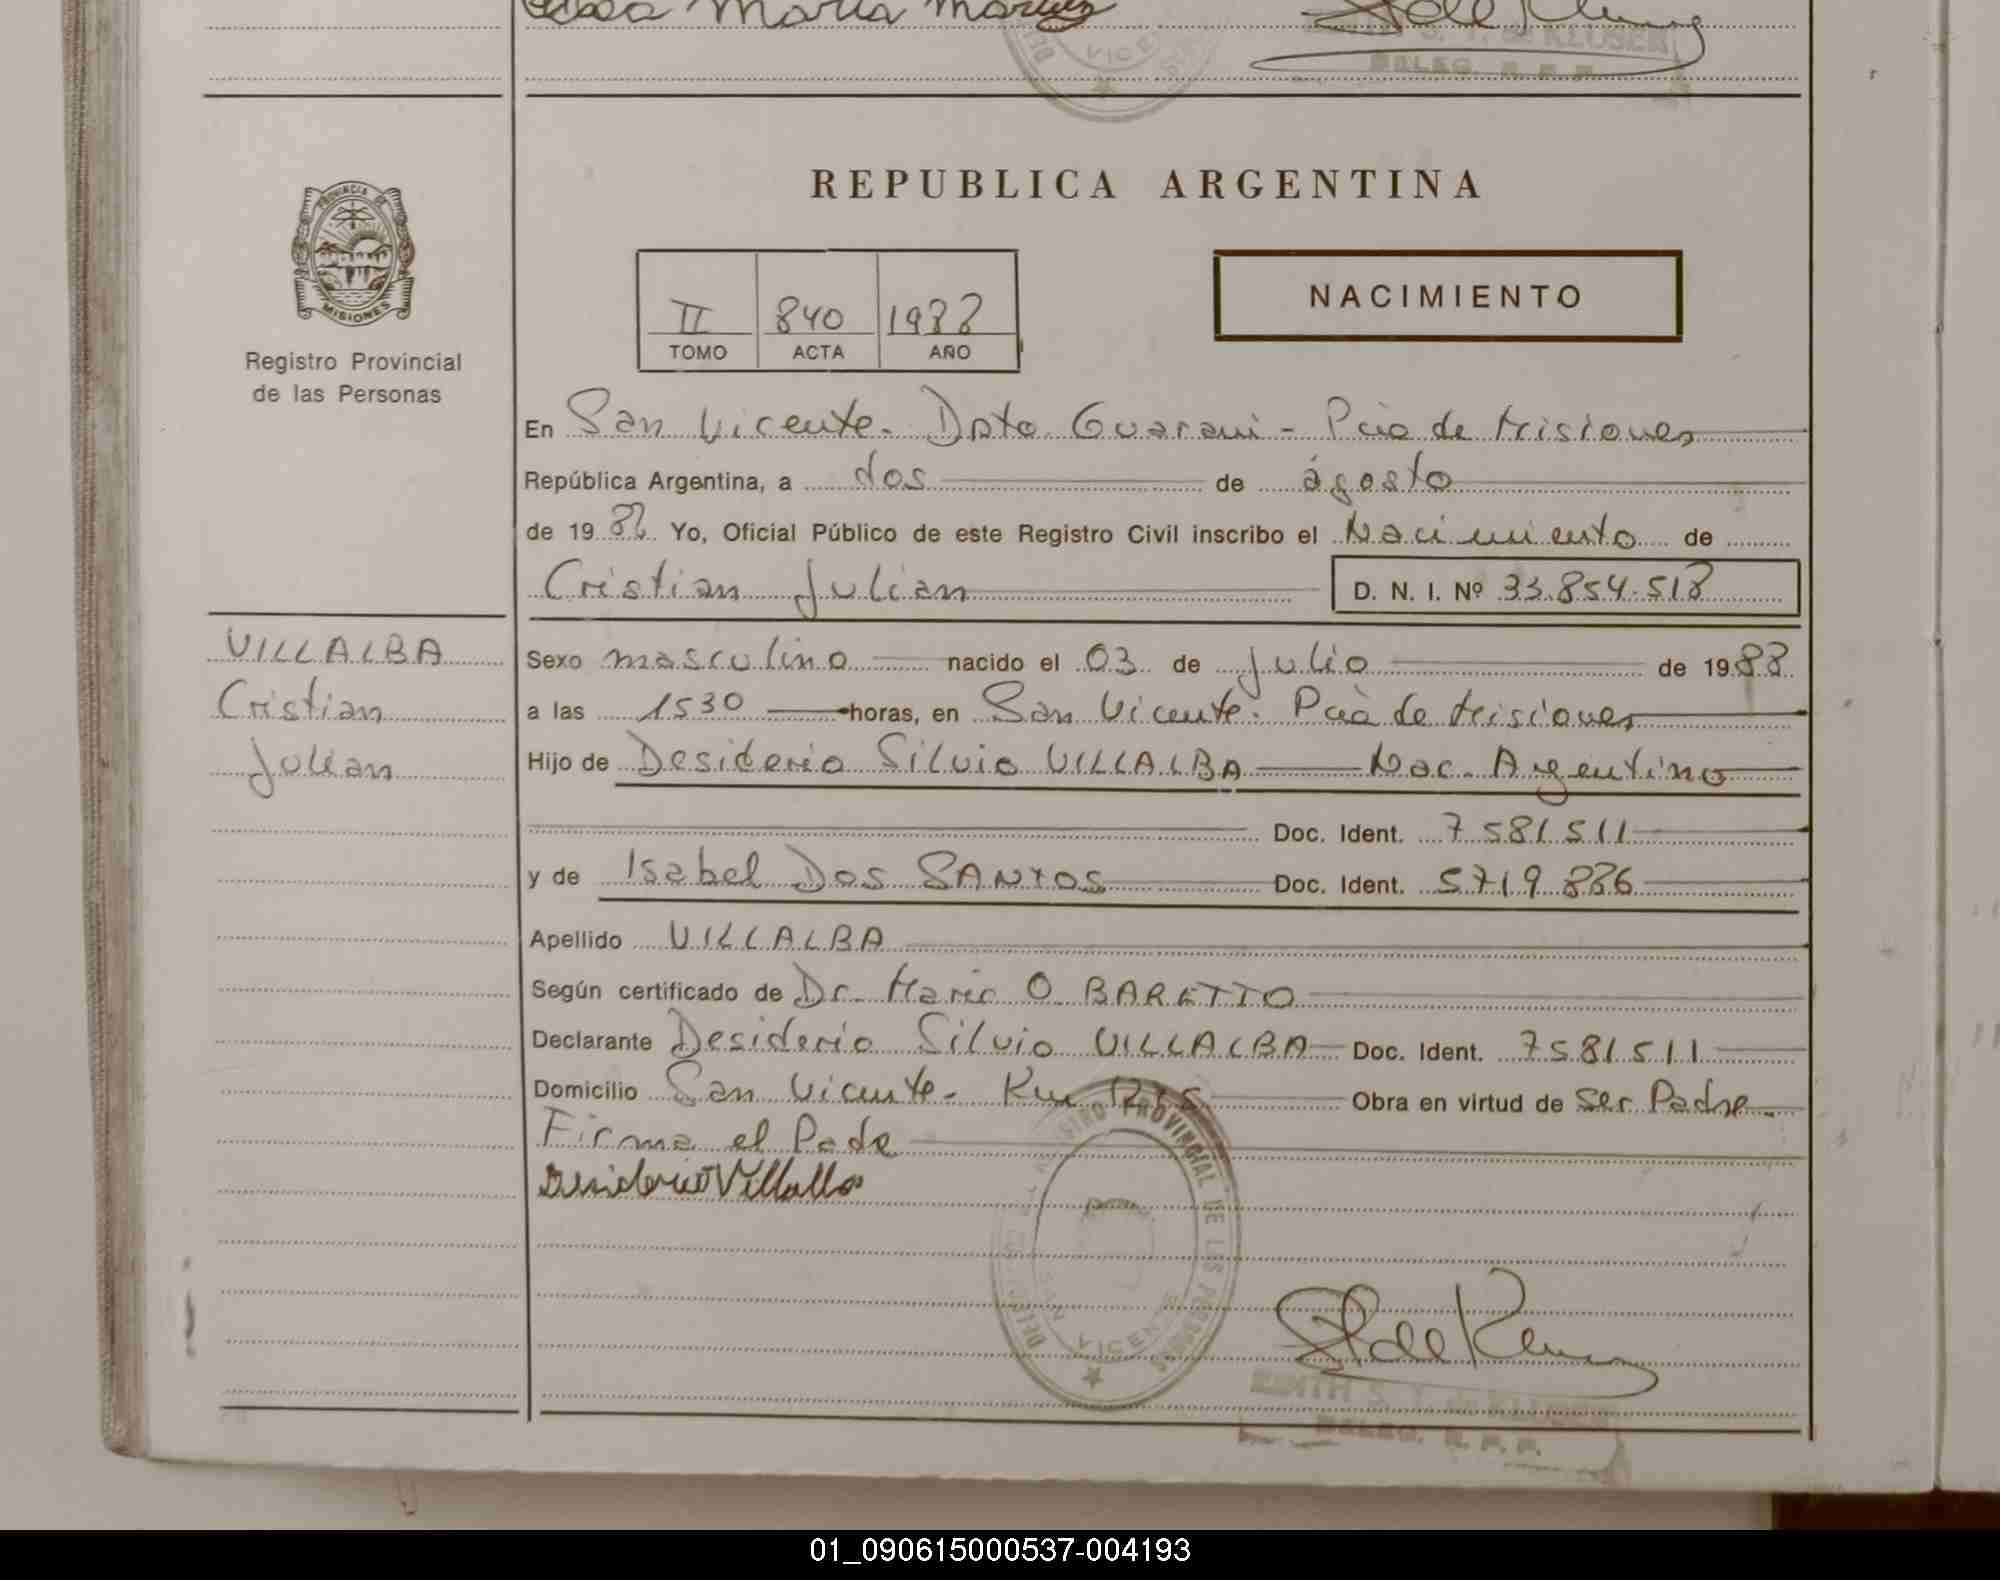 Rosa Maria Martinez
S. T. de KLUSER
DELEG. R. P. P.
REPUBLICA ARGENTINA
PROVINCIA DE
MISIONES
Registro Provincial
de las Personas
II 840 1988
TOMO ACTA AÑO
NACIMIENTO
En San Vicente - Dpto Guarani - Pcia de Misiones
República Argentina, a dos de agosto
de 19 88 Yo, Oficial Público de este Registro Civil inscribo el Nacimiento de
Cristian Julian D. N. I. Nº 33.854.518
VILLALBA
Cristian
Julian
Sexo masculino nacido el 03 de Julio de 19 88
a las 1530 horas, en San Vicente. Pcia de Misiones
Hijo de Desiderio Silvio VILLALBA Nac. Argentino
Doc. Ident. 7581511
y de Isabel Dos SANTOS Doc. Ident. 5719886
Apellido VILLALBA
Según certificado de Dr. Mario O BARETTO
Declarante Desiderio Silvio VILLALBA Doc. Ident. 7581511
Domicilio San Vicente - Km Obra en virtud de Ser Padre
Firma el Padre
Desiderio Villalba
REGISTRO PROVINCIAL DE LAS PERSONAS
SAN VICENTE
EDITH S. T. de KLUSER
DELEG. R. P. P.
01_090615000537-004193